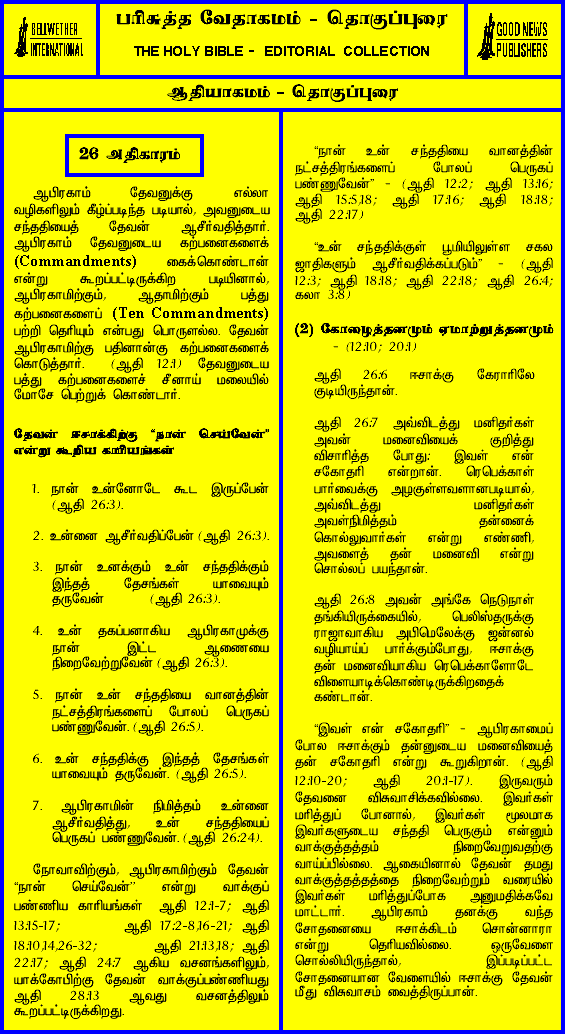 BELLWETHER
INTERNATIONAL
பரிசுத்த வேதாகமம் - தொகுப்புரை
THE HOLY BIBLE - EDITORIAL COLLECTION
GOOD NEWS
PUBLISHERS
ஆதியாகமம் - தொகுப்புரை
26 அதிகாரம்
ஆபிரகாம் தேவனுக்கு எல்லா
வழிகளிலும் கீழ்ப்படிந்த படியால், அவனுடைய
சந்ததியைத் தேவன் ஆசீர்வதித்தார்.
ஆபிரகாம் தேவனுடைய கற்பனைகளைக்
(Commandments) கைக்கொண்டான்
என்று கூறப்பட்டிருக்கிற படியினால்,
ஆபிரகாமிற்கும், ஆதாமிற்கும் பத்து
கற்பனைகளைப் (Ten Commandments)
பற்றி தெரியும் என்பது பொருளல்ல. தேவன்
ஆபிரகாமிற்கு பதினான்கு கற்பனைகளைக்
கொடுத்தார். (ஆதி 12:1) தேவனுடைய
பத்து கற்பனைகளைச் சீனாய் மலையில்
மோசே பெற்றுக் கொண்டார்.
தேவன் ஈசாக்கிற்கு "நான் செய்வேன்"
என்று கூறிய காரியங்கள்
1. நான் உன்னோடே கூட இருப்பேன்
(ஆதி 26:3).
2. உன்னை ஆசீர்வதிப்பேன் (ஆதி 26:3).
3. நான் உனக்கும் உன் சந்ததிக்கும்
இந்தத் தேசங்கள் யாவையும்
தருவேன் (ஆதி 26:3).
4. உன் தகப்பனாகிய ஆபிரகாமுக்கு
நான் இட்ட ஆணையை
நிறைவேற்றுவேன் (ஆதி 26:3).
5. நான் உன் சந்ததியை வானத்தின்
நட்சத்திரங்களைப் போலப் பெருகப்
பண்ணுவேன். (ஆதி 26:5).
6. உன் சந்ததிக்கு இந்தத் தேசங்கள்
யாவையும் தருவேன். (ஆதி 26:5).
7. ஆபிரகாமின் நிமித்தம் உன்னை
ஆசீர்வதித்து, உன் சந்ததியைப்
பெருகப் பண்ணுவேன். (ஆதி 26:24).
நோவாவிற்கும், ஆபிரகாமிற்கும் தேவன்
"நான் செய்வேன்" என்று வாக்குப்
பண்ணிய காரியங்கள் ஆதி 12:1-7; ஆதி
13:15-17; ஆதி 17:2-8,16-21; ஆதி
18:10,14,26-32; ஆதி 21:13,18; ஆதி
22:17; ஆதி 24:7 ஆகிய வசனங்களிலும்,
யாக்கோபிற்கு தேவன் வாக்குப்பண்ணியது
ஆதி 28:13 ஆவது வசனத்திலும்
கூறப்பட்டிருக்கிறது.
"நான் உன் சந்ததியை வானத்தின்
நட்சத்திரங்களைப் போலப் பெருகப்
பண்ணுவேன்" - (ஆதி 12:2; ஆதி 13:16;
ஆதி 15:5,18; ஆதி 17:16; ஆதி 18:18;
ஆதி 22:17)
"உன் சந்ததிக்குள் பூமியிலுள்ள சகல
ஜாதிகளும் ஆசீர்வதிக்கப்படும்" - (ஆதி
12:3; ஆதி 18:18; ஆதி 22:18; ஆதி 26:4;
கலா 3:8)
(2) கோழைத்தனமும் ஏமாற்றுத்தனமும்
- (12:10; 20:1)
ஆதி 26:6 ஈசாக்கு கேராரிலே
குடியிருந்தான்.
ஆதி 26:7 அவ்விடத்து மனிதர்கள்
அவன் மனைவியைக் குறித்து
விசாரித்த போது: இவள் என்
சகோதரி என்றான். ரெபெக்காள்
பார்வைக்கு அழகுள்ளவளானபடியால்,
அவ்விடத்து மனிதர்கள்
அவள்நிமித்தம் தன்னைக்
கொல்லுவார்கள் என்று எண்ணி,
அவளைத் தன் மனைவி என்று
சொல்லப் பயந்தான்.
ஆதி 26:8 அவன் அங்கே நெடுநாள்
தங்கியிருக்கையில், பெலிஸ்தருக்கு
ராஜாவாகிய அபிமெலேக்கு ஜன்னல்
வழியாய்ப் பார்க்கும்போது, ஈசாக்கு
தன் மனைவியாகிய ரெபெக்காளோடே
விளையாடிக்கொண்டிருக்கிறதைக்
கண்டான்.
"இவள் என் சகோதரி" - ஆபிரகாமைப்
போல ஈசாக்கும் தன்னுடைய மனைவியைத்
தன் சகோதரி என்று கூறுகிறான். (ஆதி
12:10-20; ஆதி 20:1-17). இருவரும்
தேவனை விசுவாசிக்கவில்லை. இவர்கள்
மரித்துப் போனால், இவர்கள் மூலமாக
இவர்களுடைய சந்ததி பெருகும் என்னும்
வாக்குத்தத்தம் நிறைவேறுவதற்கு
வாய்ப்பில்லை. ஆகையினால் தேவன் தமது
வாக்குத்தத்தத்தை நிறைவேற்றும் வரையில்
இவர்கள் மரித்துப்போக அனுமதிக்கவே
மாட்டார். ஆபிரகாம் தனக்கு வந்த
சோதனையை ஈசாக்கிடம் சொன்னாரா
என்று தெரியவில்லை. ஒருவேளை
சொல்லியிருந்தால், இப்படிப்பட்ட
சோதனையான வேளையில் ஈசாக்கு தேவன்
மீது விசுவாசம் வைத்திருப்பான்.